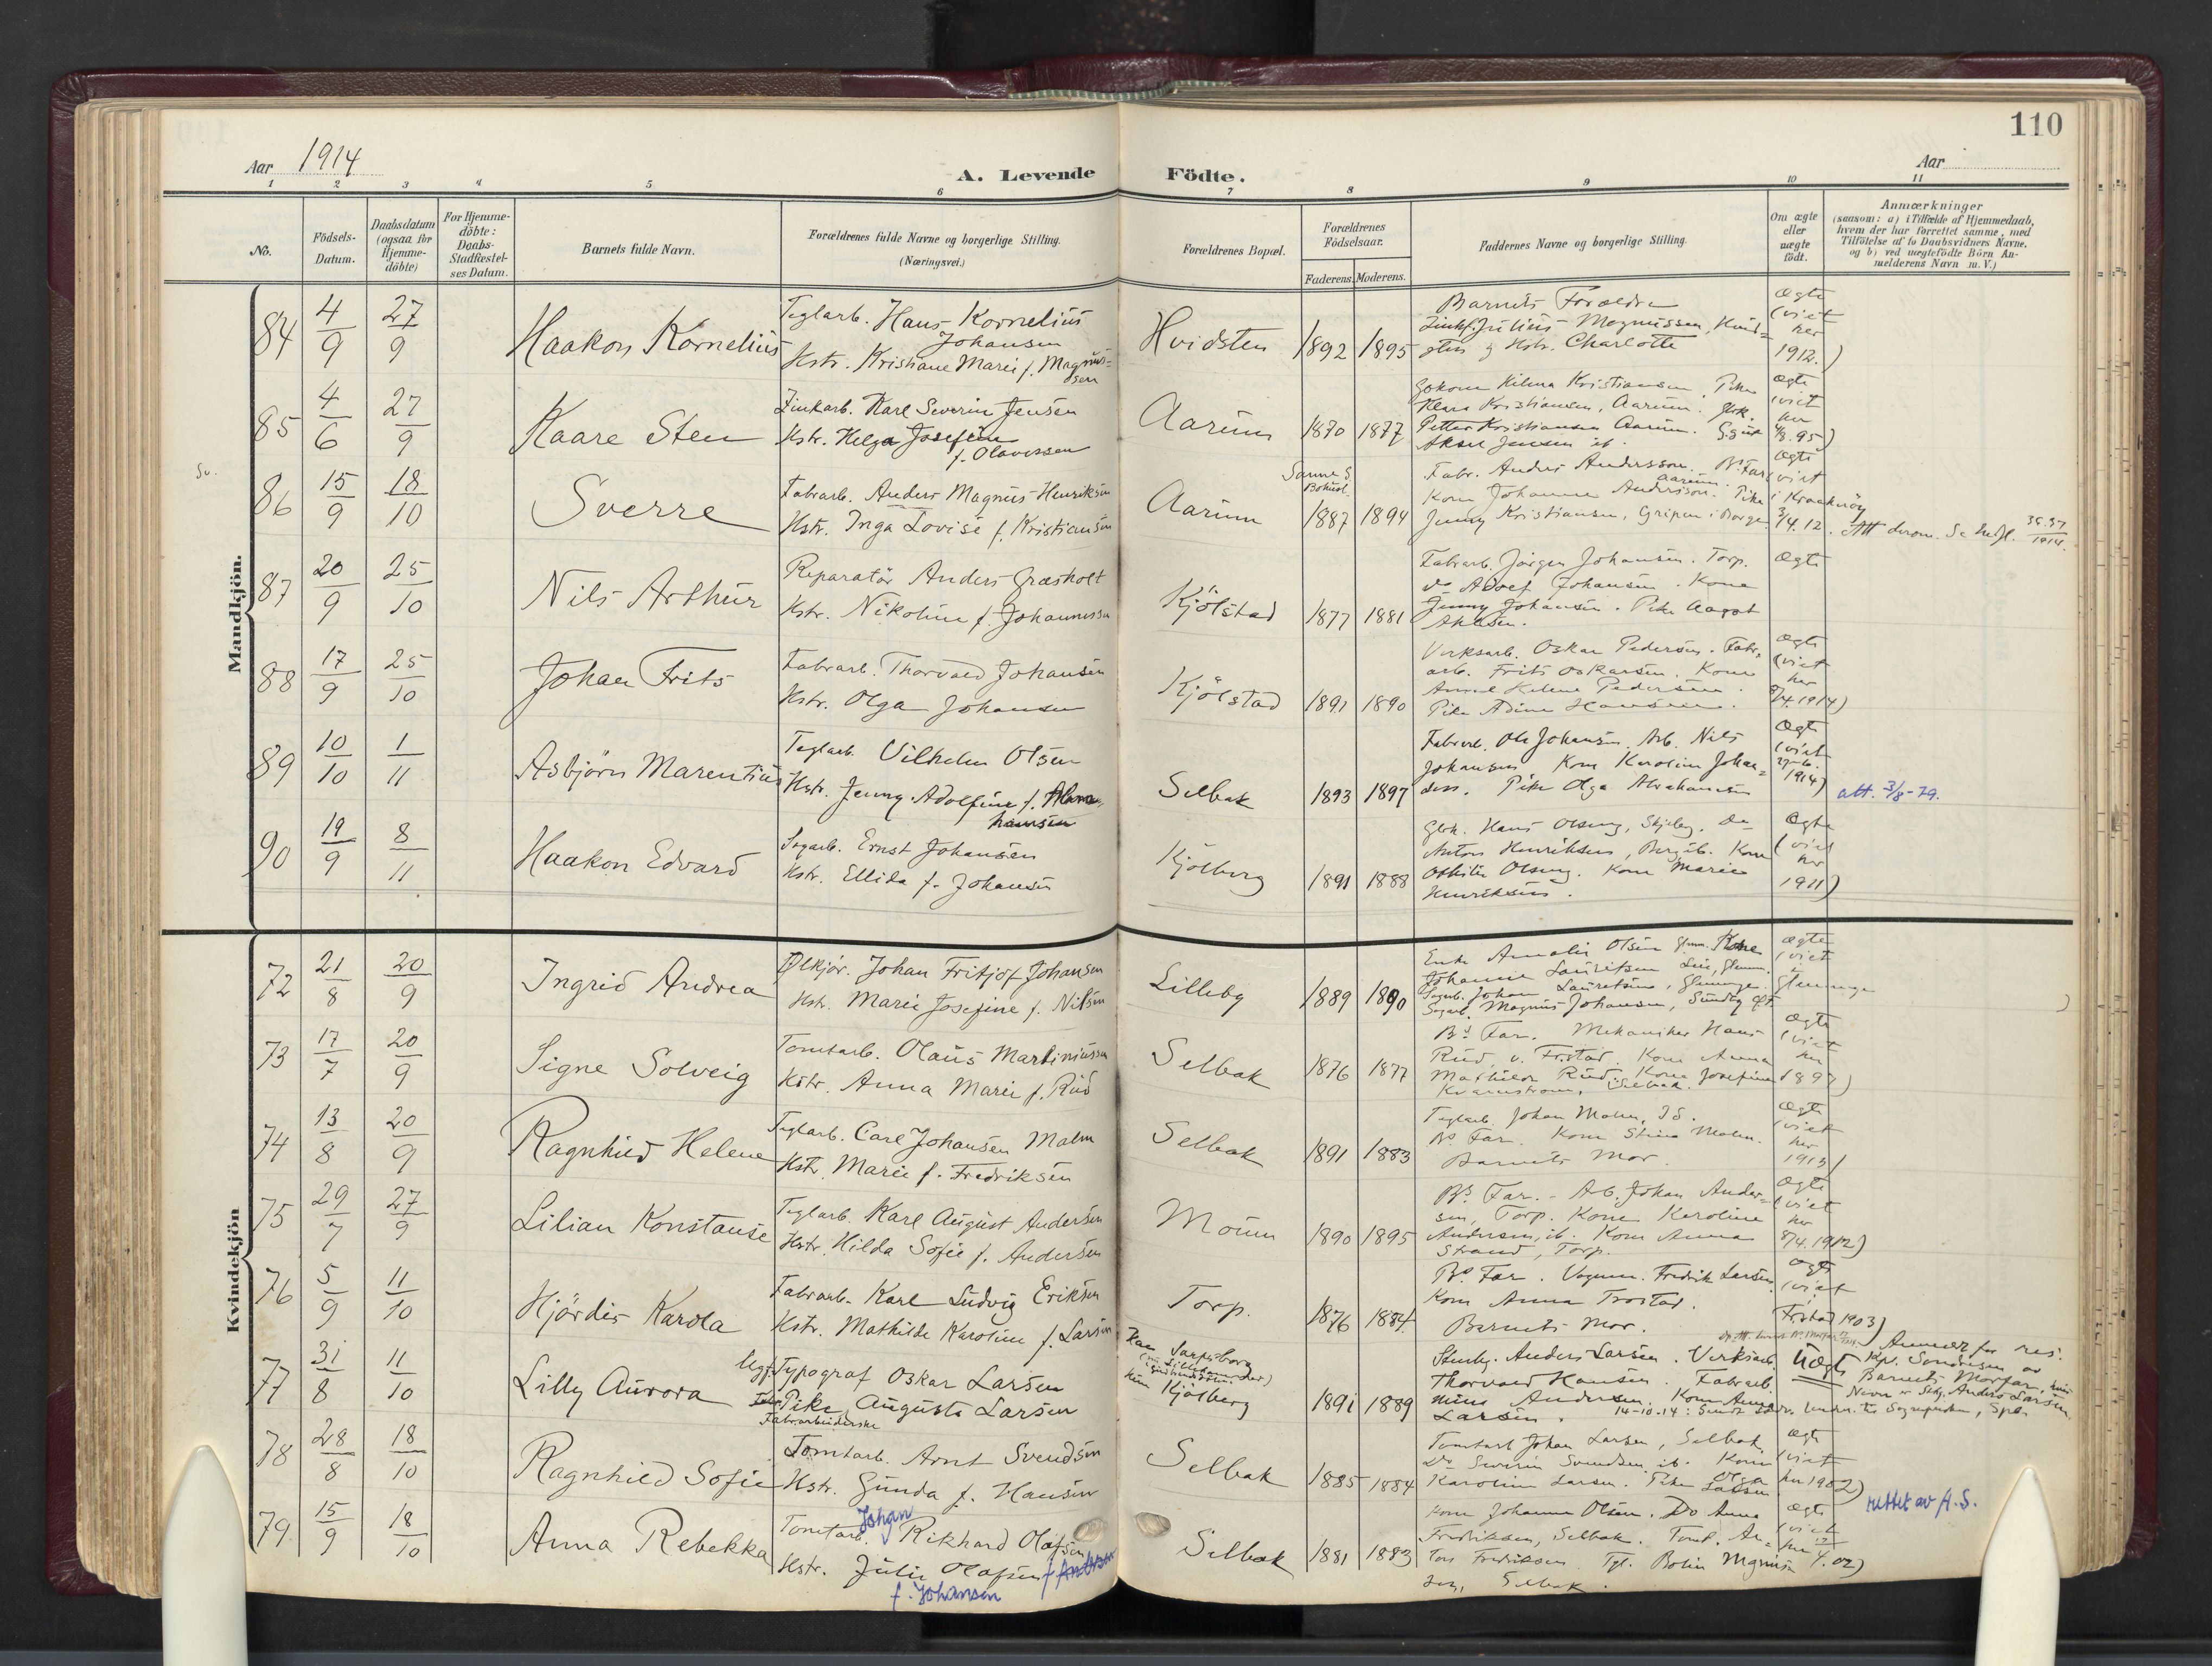 110
Aar 1914
A. Levende Födte.
Aar
1 2 3 4 5 6 7 8 9 10 11
No.
Födsels-Datum.
Daabsdatum (ogsaa for Hjemme-döbte)
For Hjemme-döbte: Daabs-Stadfæstel-ses Datum.
Barnets fulde Navn.
Forældrenes fulde Navne og borgerlige Stilling.
(Næringsvei.)
Forældrenes Bopæl.
Forældrenes Födselsaar.
Faderens. Moderens.
Faddernes Navne og borgerlige Stilling.
Om ægte eller uægte födt.
Anmærkninger
(saasom: a) i Tilfælde af Hjemmedaab, hvem der har forrettet samme, med Tilföielse af to Daabsvidners Navne, og b) ved uægtefödte Börn An-melderens Navn m. V.)
Mandkjön.
84 4/9 27/9 Haakon Kornelius
Teglarb. Hans Kornelius Johansen
Hstr. Kristiane Marie f. Magnus-sen
Hvidsten 1892 1895
Barnets Forældre
Julius Magnussen, Hvid-
sten g Hstr. Charlotte
Ægte (viet her 1912.)
85 4/6 27/9 Kaare Sten
Zinkarb. Karl Severin Jensen
Hstr. Helga Josefine f. Olavessen
Aarum 1870 1877
Kristiansen, Pike
Klara Kristiansen, Aarum.
Petter Kristiansen Aarum.
Aksel Jensen ib.
Ægte (viet her 95)
Sv.
86 15/9 18/10 Sverre
Fabrarb. Anders Magnus Henriksen
Hstr. Inga Lovise f. Kristiansen
Sanne S. Bohusl.
Aarum 1887 1894
Fabr. Anders Andersson. Bs Far
Aarum.
Kone Johanne Andersson. Pike
Jenny Kristiansen, Gripen i Borge
Ægte (viet i Kraakeröy 3/4. 12.
Att derom. Se 36.37/1914.
87 20/9 25/10 Nils Arthur
Reparatör Anders Græsholt
Hstr. Nikoline f. Johannessen
Kjölstad 1877 1881
Fabrarb. Jörgen Johansen. Torp.
do Adolf Johansen. Kone
Jenny Johansen. Pike Aagot
Ægte
88 17/9 25/10 Johan Frits
Fabrarb. Thorvald Johansen
Hstr. Olga Johansen
Kjölstad 1891 1890
Verksarb. Oskar Pedersen. Fabr.
arb. Frits Oskarsen. Kone
Helene Pedersen.
Pike Adine Hansen.
Ægte (viet her 1914)
89 10/10 1/11 Asbjörn Marentius
Teglarb. Vilhelm Olsen
Hstr. Jenny Adolfine f. Abra-
hamsen
Selbak 1893 1897
Fabrarb. Ole Johansen. Arb. Nils
Johansen Kone Karoline Johan-
sen. Pike Olga Abrahamsen
Ægte (viet 1914)
att. 3/8-79.
90 19/9 8/11 Haakon Edvard
Sagarb. Ernst Johansen
Hstr. Ellida f. Johansen
Kjölberg 1891 1888
Gbr. Hans Olseng, Skjeberg. Do
Anton Henriksen, Kone
Othilie Olseng. Kone Marie
Henriksen.
Ægte (viet her 1911)
Kvindekjön
72 21/8 20/9 Ingrid Andrea
Ølkjör. Johan Fritjof Johansen
Hstr. Marie Josefine f. Nilsen
Lilleby 1889 1890
Enke Amalie Olsen Glemm. Kone
Johanne Lauritsen Lie, Glemm.
Sagarb. Johan Lauretsen, Glemminge.
Sagarb. Magnus Johansen, Sundby
Ægte (viet i Glemminge
)
73 17/7 20/9 Signe Solveig
Tomtarb. Olaus Martiniusen
Hstr. Anna Marie f. Rud
Selbak 1876 1877
Bs Far. Mekaniker Hans
Rud, v. Fr.stad. Kone Anna
Mathilde Rud. Kone Josefine
Kvarnstrøm, Selbak.
Ægte (viet her 1897)
74 13/8 20/9 Ragnhild Helene
Teglarb. Carl Johansen Malm
Hstr. Marie f. Fredriksen
Selbak 1891 1883
Teglarb. Johan Malm,
Bs Far. Kone Stina Malm.
Barnets Mor
Ægte (viet her 1913)
75 29/7 27/9 Lilian Konstanse
Teglarb. Karl August Andersen
Hstr. Hilda Sofie f. Andersen
Moum 1890 1895
Bs Far. - Arb. Johan Ander-
sen, Torp. Kone Karoline
Andersen, ib. Kone Anna
Strand, Torp.
Ægte (viet her 8/4. 1912)
76 5/9 11/10 Hjördis Karola
Fabrarb. Karl Ludvig Eriksen
Hstr. Mathilde Karoline f. Larsen
Torp. 1876 1884.
Bs Far. Vognm. Fredrik Larsen.
Kone Anna Trostad.
Barnets Mor.
Ægte (viet i Fr.stad 1903)
77 31/8 11/10 Lilly Aurora
Ugf. Typograf Oskar Larsen
Pike Augusta Larsen
Fabrarbeiderske
Han Sarpsborg
hun Kjölberg 1891 1889
Stenhg. Anders Larsen. Verksarb.
Thorvald Hansen. Fabrarb.
Andersen. Kone Anna
Larsen.
Uægte
Anmeldt for res. Kpl. Sandersen av Barnets Morfar, hvis Navn er Anders Larsen.
14-10.14: Sendt
78 28/8 18/10 Ragnhild Sofie
Tomtarb. Arnt Svendsen
Hstr. Gunda f. Hansen
Selbak 1885 1884
Tomtarb Johan Larsen, Selbak.
Do Severin Svendsen ib. Kone
Karoline Larsen. Pike Olga Larsen
Ægte (viet her 1902)
79. 15/9 18/10 Anna Rebekka
Tomtarb. Johan Rikhard Olafsen
Hstr. Julie Olafsen f Andersen
f. Johansen
Selbak 1881 1883
Kone Johanne Olsen. Do Anna
Fredriksen, Selbak. Tomt. An-
ton Fredriksen Tgl. Bolin Magnus-
sen, Selbak.
Ægte (viet her 4. 02)
rettet av A.S.